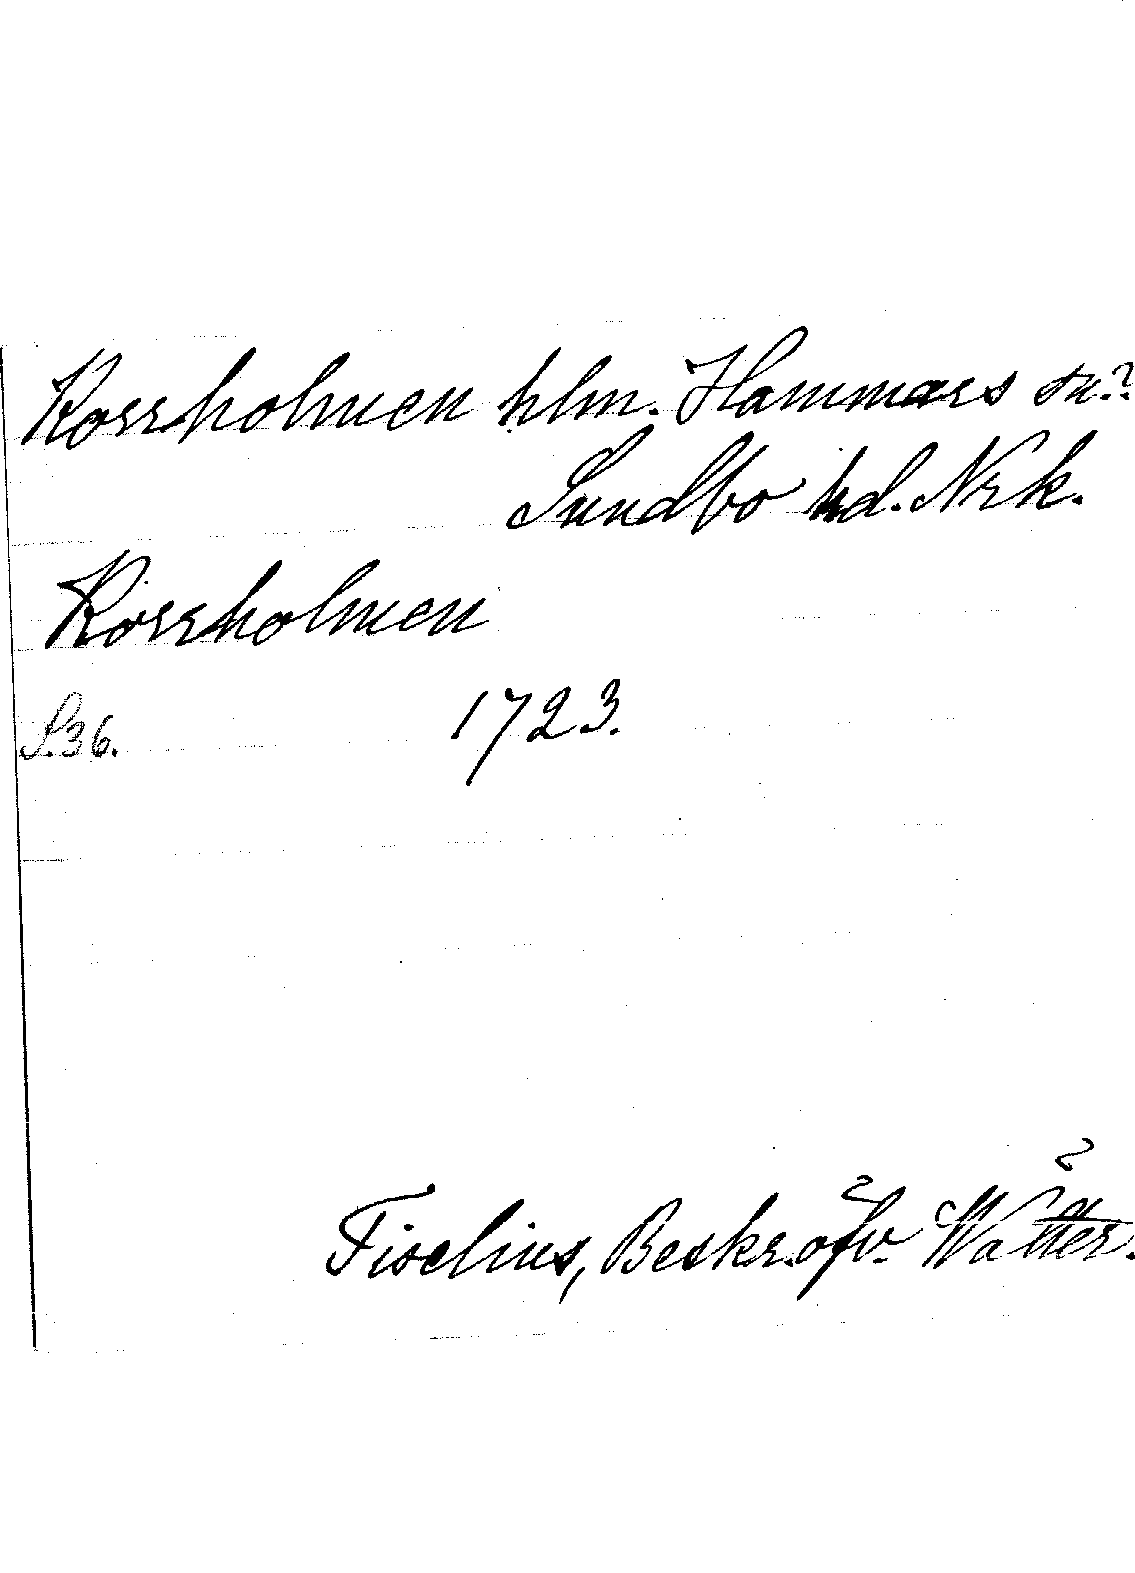 Korrholmen hlm. Hammars sn?
Sundbo hd. Nrk.
Korrholmen
S. 36. 1723.
Tiselius, Beskr. öfv. Wätter.